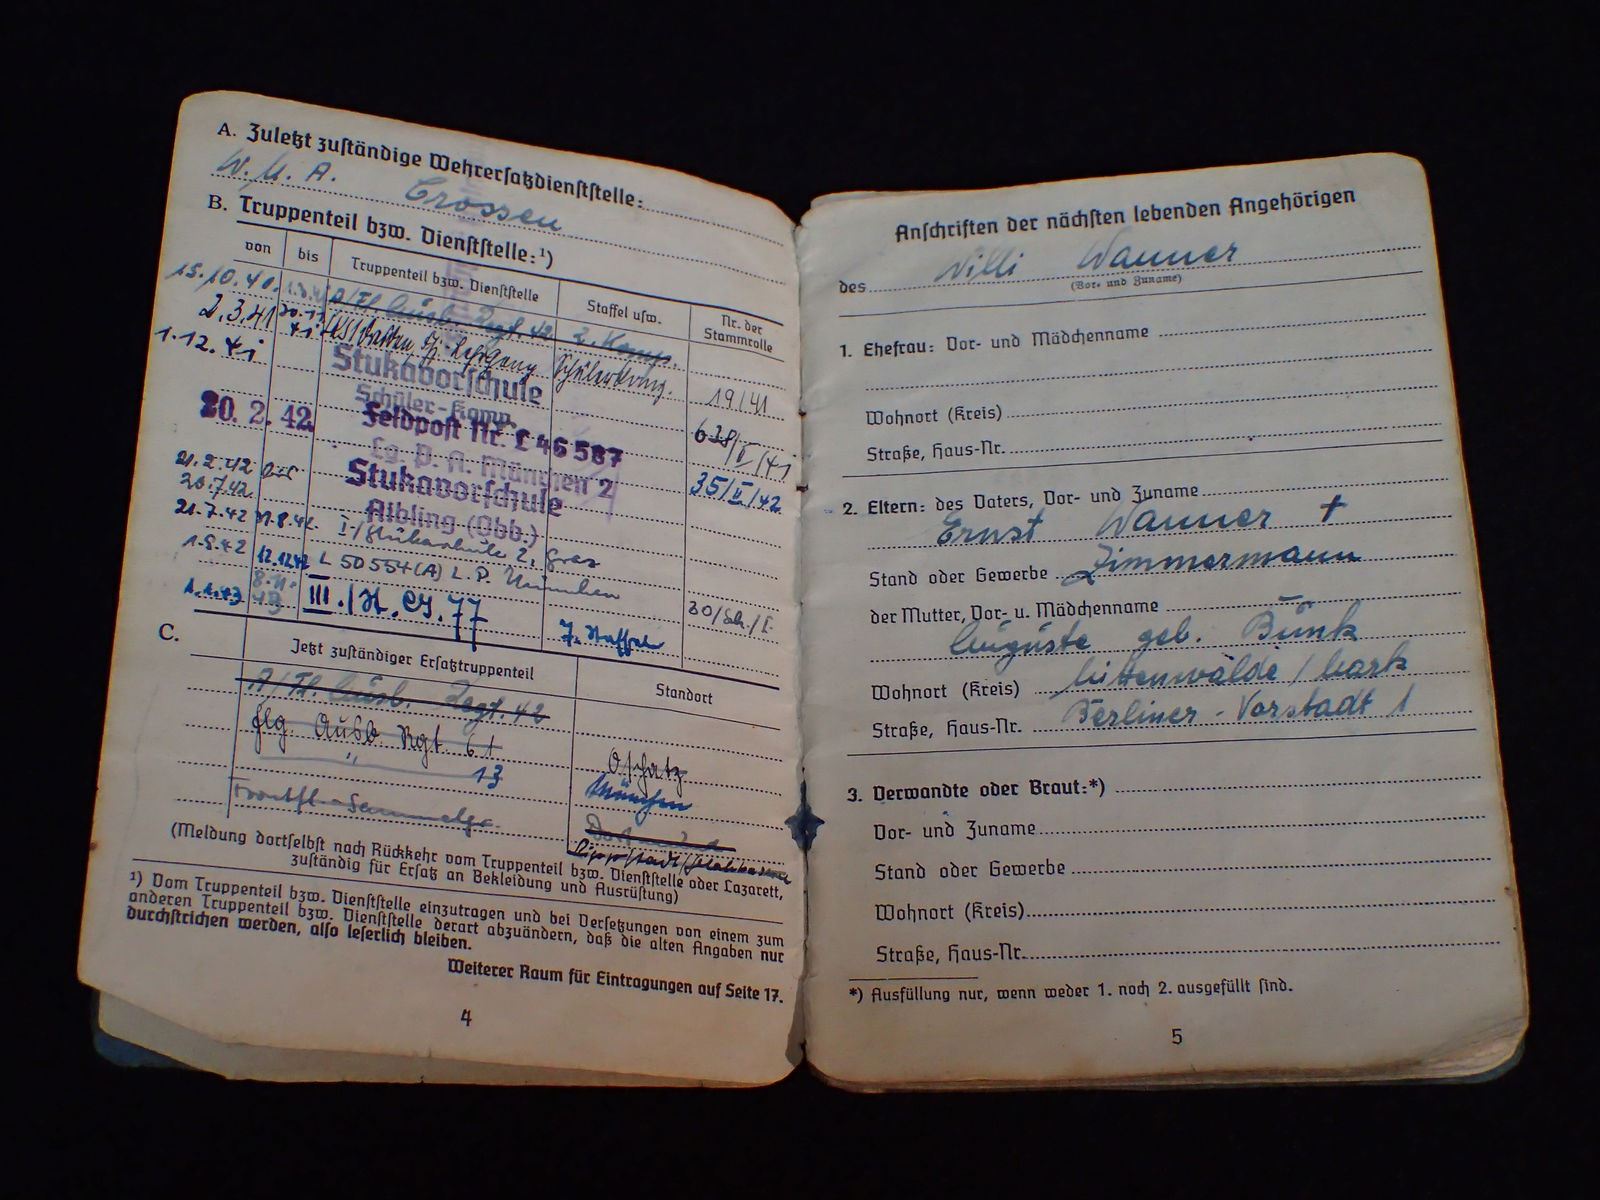 A. Zuletzt zuständige Wehrersatzdienststelle:
W. M. A. Crossen
B. Truppenteil bzw. Dienststelle:¹)
von bis Truppenteil bzw. Dienststelle Staffel usw. Nr. der Stammrolle
15.10.40. A/Fl. Ausb. Regt. 42 2. Komp.
2.3.41 Lehrgang 19/41
1.12.41 Stukavorschule
Schüler-Komp.
20. 2. 42. Feldpost Nr. L 46 587
Lg. P. A. München 2 35/II/42
21.2.42 Stukavorschule
20.7.42 Aibling (Obb.)
21.7.42 31.8.42 I/
1.9.42 12.12.42 L 50554(A) L.P. München
1.1.43 8.11.43 III./St.G.77 7. Staffel
C. Jetzt zuständiger Ersatztruppenteil Standort
A/Fl. Ausb. Regt. 42
Flg. Ausb. Rgt. 61 Oschatz
" 13 München
(Meldung dortselbst nach Rückkehr vom Truppenteil bzw. Dienststelle oder Lazarett,
zuständig für Ersatz an Bekleidung und Ausrüstung)
¹) Vom Truppenteil bzw. Dienststelle einzutragen und bei Versetzungen von einem zum
anderen Truppenteil bzw. Dienststelle derart abzuändern, daß die alten Angaben nur
durchstrichen werden, also leserlich bleiben.
Weiterer Raum für Eintragungen auf Seite 17.
4
Anschriften der nächsten lebenden Angehörigen
des Willi Wanner
(Vor- und Zuname)
1. Ehefrau: Vor- und Mädchenname
Wohnort (Kreis)
Straße, Haus-Nr.
2. Eltern: des Vaters, Vor- und Zuname
Ernst Wanner +
Stand oder Gewerbe Zimmermann
der Mutter, Vor- u. Mädchenname
Auguste geb. Bünk
Wohnort (Kreis) Mittenwalde / Mark
Straße, Haus-Nr. Berliner-Vorstadt 1
3. Verwandte oder Braut:*)
Vor- und Zuname
Stand oder Gewerbe
Wohnort (Kreis)
Straße, Haus-Nr.
*) Ausfüllung nur, wenn weder 1. noch 2. ausgefüllt sind.
5